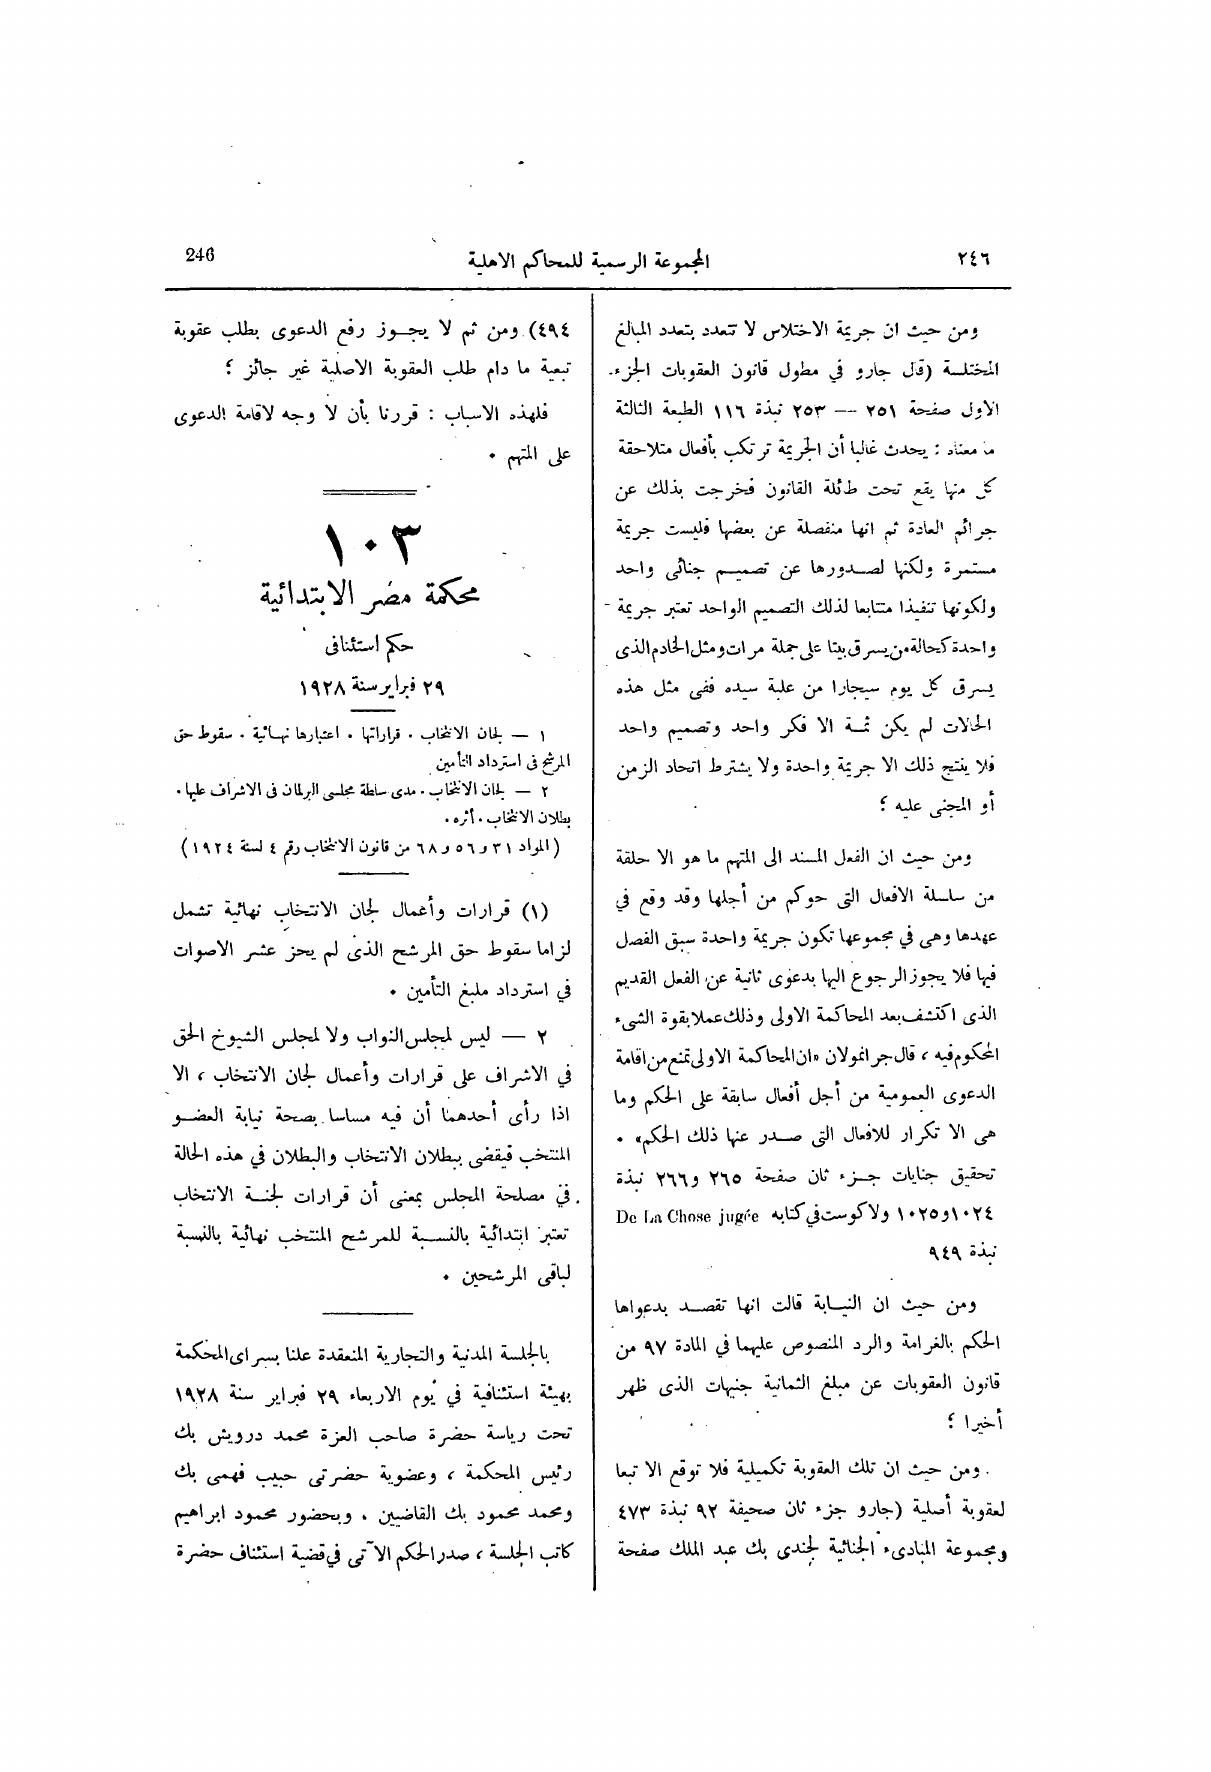 ٢٤٦
المجموعة الرسمية للمحاكم الاهلية
246
ومن حيث ان جريمة الاختلاس لا تتعدد بتعدد المبالغ
المختلسة (قال جارو في مطول قانون العقوبات الجزء
الاول صفحة ٢٥١ — ٢٥٣ نبذة ١١٦ الطبعة الثالثة
ما معناه : يحدث غالبا أن الجريمة ترتكب بأفعال متلاحقة
كل منها يقع تحت طائلة القانون فخرجت بذلك عن
جرائم العادة ثم انها منفصلة عن بعضها فليست جريمة
مستمرة ولكنها لصدورها عن تصميم جنائى واحد
ولكونها تنفيذا متتابعا لذلك التصميم الواحد تعتبر جريمة
واحدة كحالة من يسرق بيتا على جملة مرات ومثل الخادم الذى
يسرق كل يوم سيجارا من علبة سيده ففى مثل هذه
الحالات لم يكن ثمة الا فكر واحد وتصميم واحد
فلا ينتج ذلك الا جريمة واحدة ولا يشترط اتحاد الزمن
أو المجنى عليه ؛
ومن حيث ان الفعل المسند الى المتهم ما هو الا حلقة
من سلسلة الافعال التى حوكم من أجلها وقد وقع في
عهدها وهى في مجموعها تكون جريمة واحدة سبق الفصل
فيها فلا يجوز الرجوع اليها بدعوى ثانية عن الفعل القديم
الذى اكتشف بعد المحاكمة الاولى وذلك عملا بقوة الشىء
المحكوم فيه ، قال جرانمولان «ان المحاكمة الاولى تمنع من اقامة
الدعوى العمومية من أجل أفعال سابقة على الحكم وما
هى الا تكرار للافعال التى صدر عنها ذلك الحكم» .
تحقيق جنايات جزء ثان صفحة ٢٦٥ و٢٦٦ نبذة
١٠٢٤ و١٠٢٥ ولاكوست في كتابه De La Chose jugée
نبذة ٩٤٩
ومن حيث ان النيابة قالت انها تقصد بدعواها
الحكم بالغرامة والرد المنصوص عليهما في المادة ٩٧ من
قانون العقوبات عن مبلغ الثمانية جنيهات الذى ظهر
أخيرا ؛
ومن حيث ان تلك العقوبة تكميلية فلا توقع الا تبعا
لعقوبة أصلية (جارو جزء ثان صحيفة ٩٢ نبذة ٤٧٣
ومجموعة المبادىء الجنائية لجندى بك عبد الملك صفحة
٤٩٤) ومن ثم لا يجوز رفع الدعوى بطلب عقوبة
تبعية ما دام طلب العقوبة الاصلية غير جائز ؛
فلهذه الاسباب : قررنا بأن لا وجه لاقامة الدعوى
على المتهم .
١٠٣
محكمة مصر الابتدائية
حكم استئنافى
٢٩ فبراير سنة ١٩٢٨
١ — لجان الانتخاب . قراراتها . اعتبارها نهائية . سقوط حق
المرشح فى استرداد التأمين
٢ — لجان الانتخاب . مدى سلطة مجلسى البرلمان فى الاشراف عليها .
بطلان الانتخاب . أثره .
(المواد ٣١ و٥٦ و٦٨ من قانون الانتخاب رقم ٤ لسنة ١٩٢٤)
(١) قرارات وأعمال لجان الانتخاب نهائية تشمل
لزاما سقوط حق المرشح الذى لم يحز عشر الاصوات
في استرداد مبلغ التأمين .
٢ — ليس لمجلس النواب ولا لمجلس الشيوخ الحق
في الاشراف على قرارات وأعمال لجان الانتخاب ، الا
اذا رأى أحدهما أن فيه مساسا بصحة نيابة العضو
المنتخب فيقضى ببطلان الانتخاب والبطلان في هذه الحالة
في مصلحة المجلس بمعنى أن قرارات لجنة الانتخاب
تعتبر ابتدائية بالنسبة للمرشح المنتخب نهائية بالنسبة
لباقى المرشحين .
بالجلسة المدنية والتجارية المنعقدة علنا بسراى المحكمة
بهيئة استئنافية في يوم الاربعاء ٢٩ فبراير سنة ١٩٢٨
تحت رياسة حضرة صاحب العزة محمد درويش بك
رئيس المحكمة ، وعضوية حضرتى حبيب فهمى بك
ومحمد محمود بك القاضيين . وبحضور محمود ابراهيم
كاتب الجلسة ، صدر الحكم الآتى في قضية استئناف حضرة